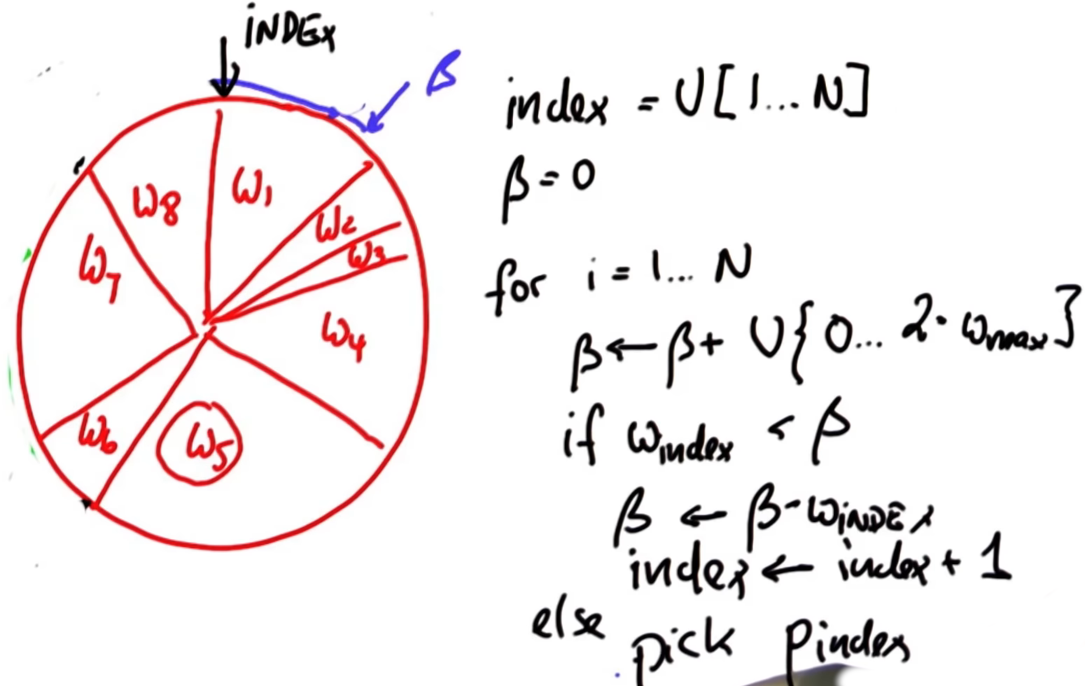 INDEX
β
ω1
ω2
ω3
ω4
ω5
ω6
ω7
ω8
index = U[1... N]
β = 0
for i = 1... N
β ← β + U{0... 2· ωmax}
if ωindex < β
β ← β - ωINDEX
index ← index + 1
else
pick pindex